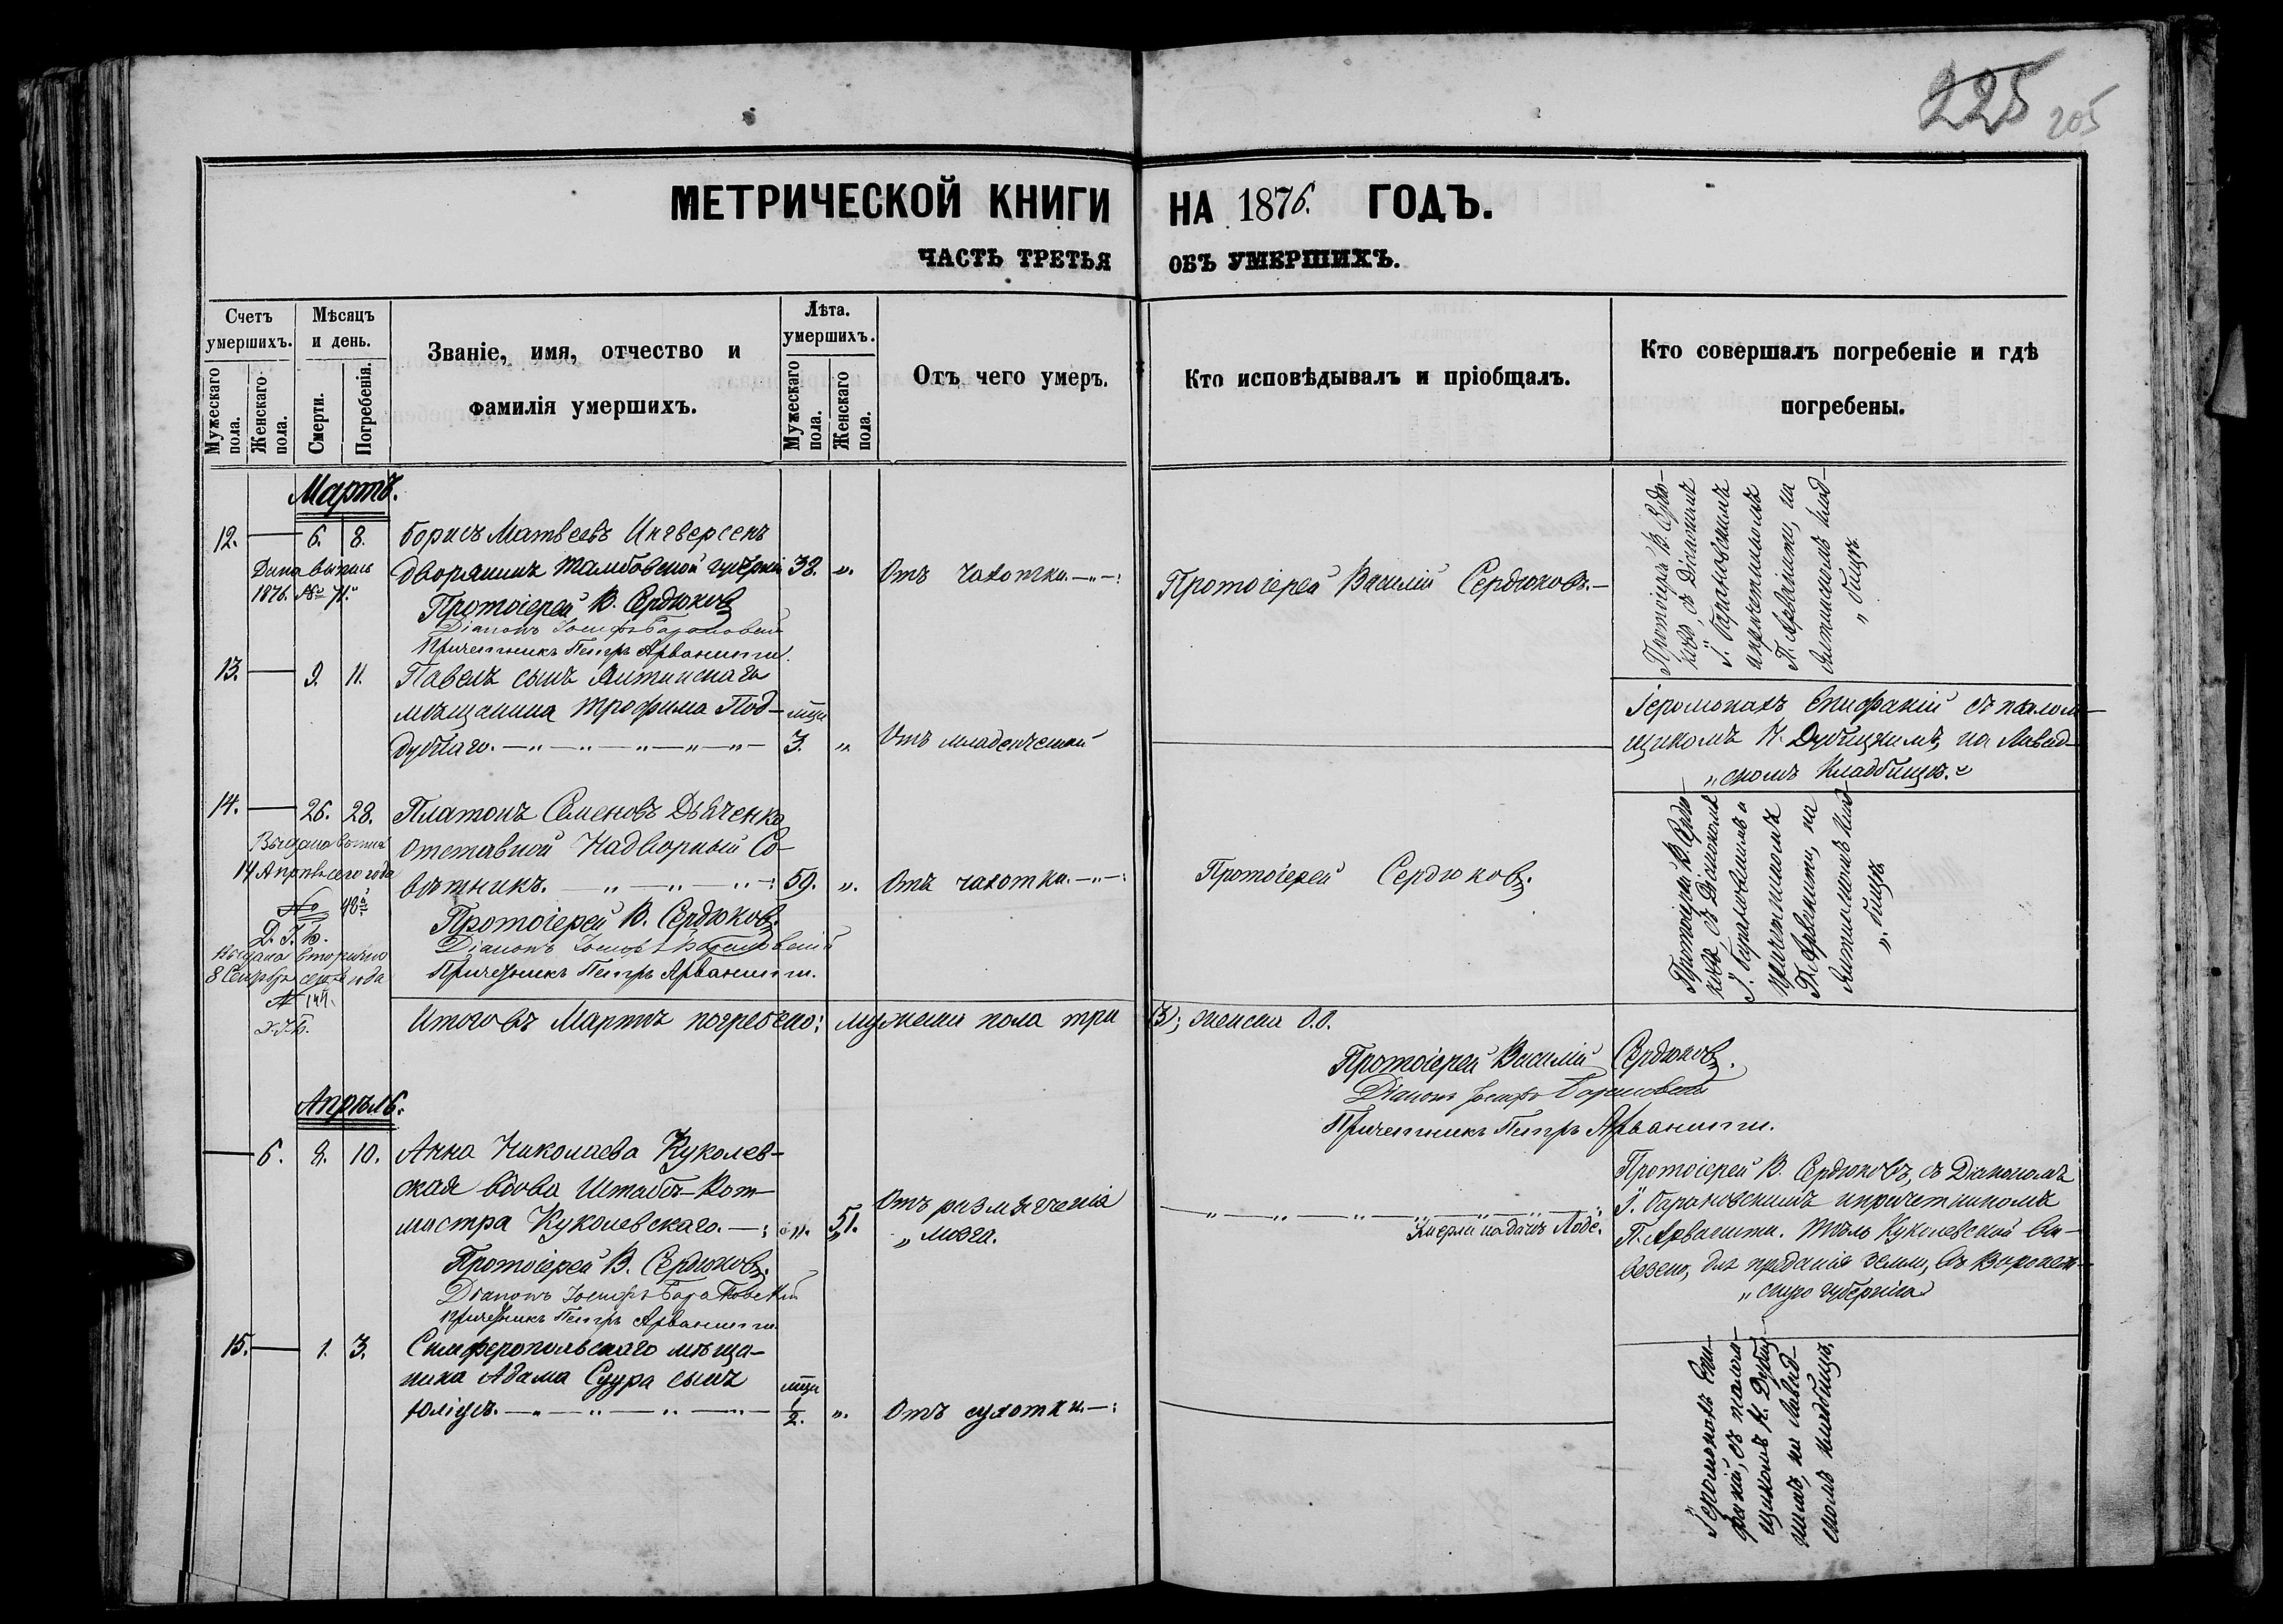 225 205
МЕТРИЧЕСКОЙ КНИГИ НА 1876. ГОДЪ.
ЧАСТЬ ТРЕТЬЯ ОБЪ УМЕРШИХЪ.
Счетъ умершихъ.
Мужескаго пола.
Женскаго пола.
Мѣсяцъ и день.
Смерти.
Погребенія.
Званіе, имя, отчество и
фамилія умершихъ.
Лѣта. умершихъ.
Мужескаго пола.
Женскаго пола.
Отъ чего умеръ.
Кто исповѣдывалъ и пріобщалъ.
Кто совершалъ погребеніе и гдѣ
погребены.
Мартъ.
12. 6. 8. Борисъ Матвеевъ Ингверсенъ
дворянинъ Тамбовской губерніи 38. „. Отъ чахотки.
Дана выпись
1876. № 71.
Протоіерей В. Сердюковъ
Діаконъ Іосифъ Барановскій
Причетникъ Петръ Арванити.
Протоіерей Василій Сердюковъ.
Протоіерей В. Сердю-
ковъ, съ Діакономъ
І. Барановскимъ
и причетникомъ
П. Арванити, на
Ялтинскомъ клад-
„ бищѣ.
13. 9. 11. Павелъ сынъ Ялтинскаго
мѣщанина Трофима Под-
дубнаго. мѣц 3. „ Отъ младенческой
Іеромонахъ Епифаній съ палом-
щикомъ К. Дубицкимъ, на Ливад-
„ скомъ кладбищѣ.
14. 26. 28. Платонъ Семеновъ Дьяченко
отставной Надворный Со-
вѣтникъ. 59. „. Отъ чахотки.
Выдана выпись
14 Апрѣля сего года
№ 48
Выдана вторично
8 Сентября сего года
№ 144.
Протоіерей В. Сердюковъ.
Діаконъ Іосифъ Барановскій
Причетникъ Петръ Арванити.
Протоіерей Сердюковъ.
Протоіерей В. Сердю-
ковъ, съ Діакономъ
І. Барановскимъ и
причетникомъ
П. Арванити, на
Ялтинскомъ клад-
„. бищѣ.
Итого въ Мартѣ погребено: мужеска пола три (3); женска 0.0.
Протоіерей Василій Сердюковъ.
Діаконъ Іосифъ Барановскій
Причетникъ Петръ Арванити.
Апрѣль.
6. 8. 10. Анна Николаева Куколев-
ская вдова Штабъ-Рот-
мистра Куколевскаго. „. 51. Отъ размягченія
„ мозга.
Протоіерей В. Сердюковъ.
Діаконъ Іосифъ Барановскій
Причетникъ Петръ Арванити.
Протоіерей В. Сердюковъ, съ Діакономъ
І. Барановскимъ и причетникомъ
П. Арванити. Тѣло Куколевской вы-
везено, для преданія земли, въ Воронеж-
„ скую губернію
15. 1. 3. Симферопольскаго мѣща-
нина Адама Суура сынъ
Юліусъ. мѣц 1/2. „. Отъ сухотки.
Іеромонахъ Епи-
фаній, съ палом-
щикомъ К. Дубиц-
кимъ, на Ливад-
скомъ кладбищѣ.